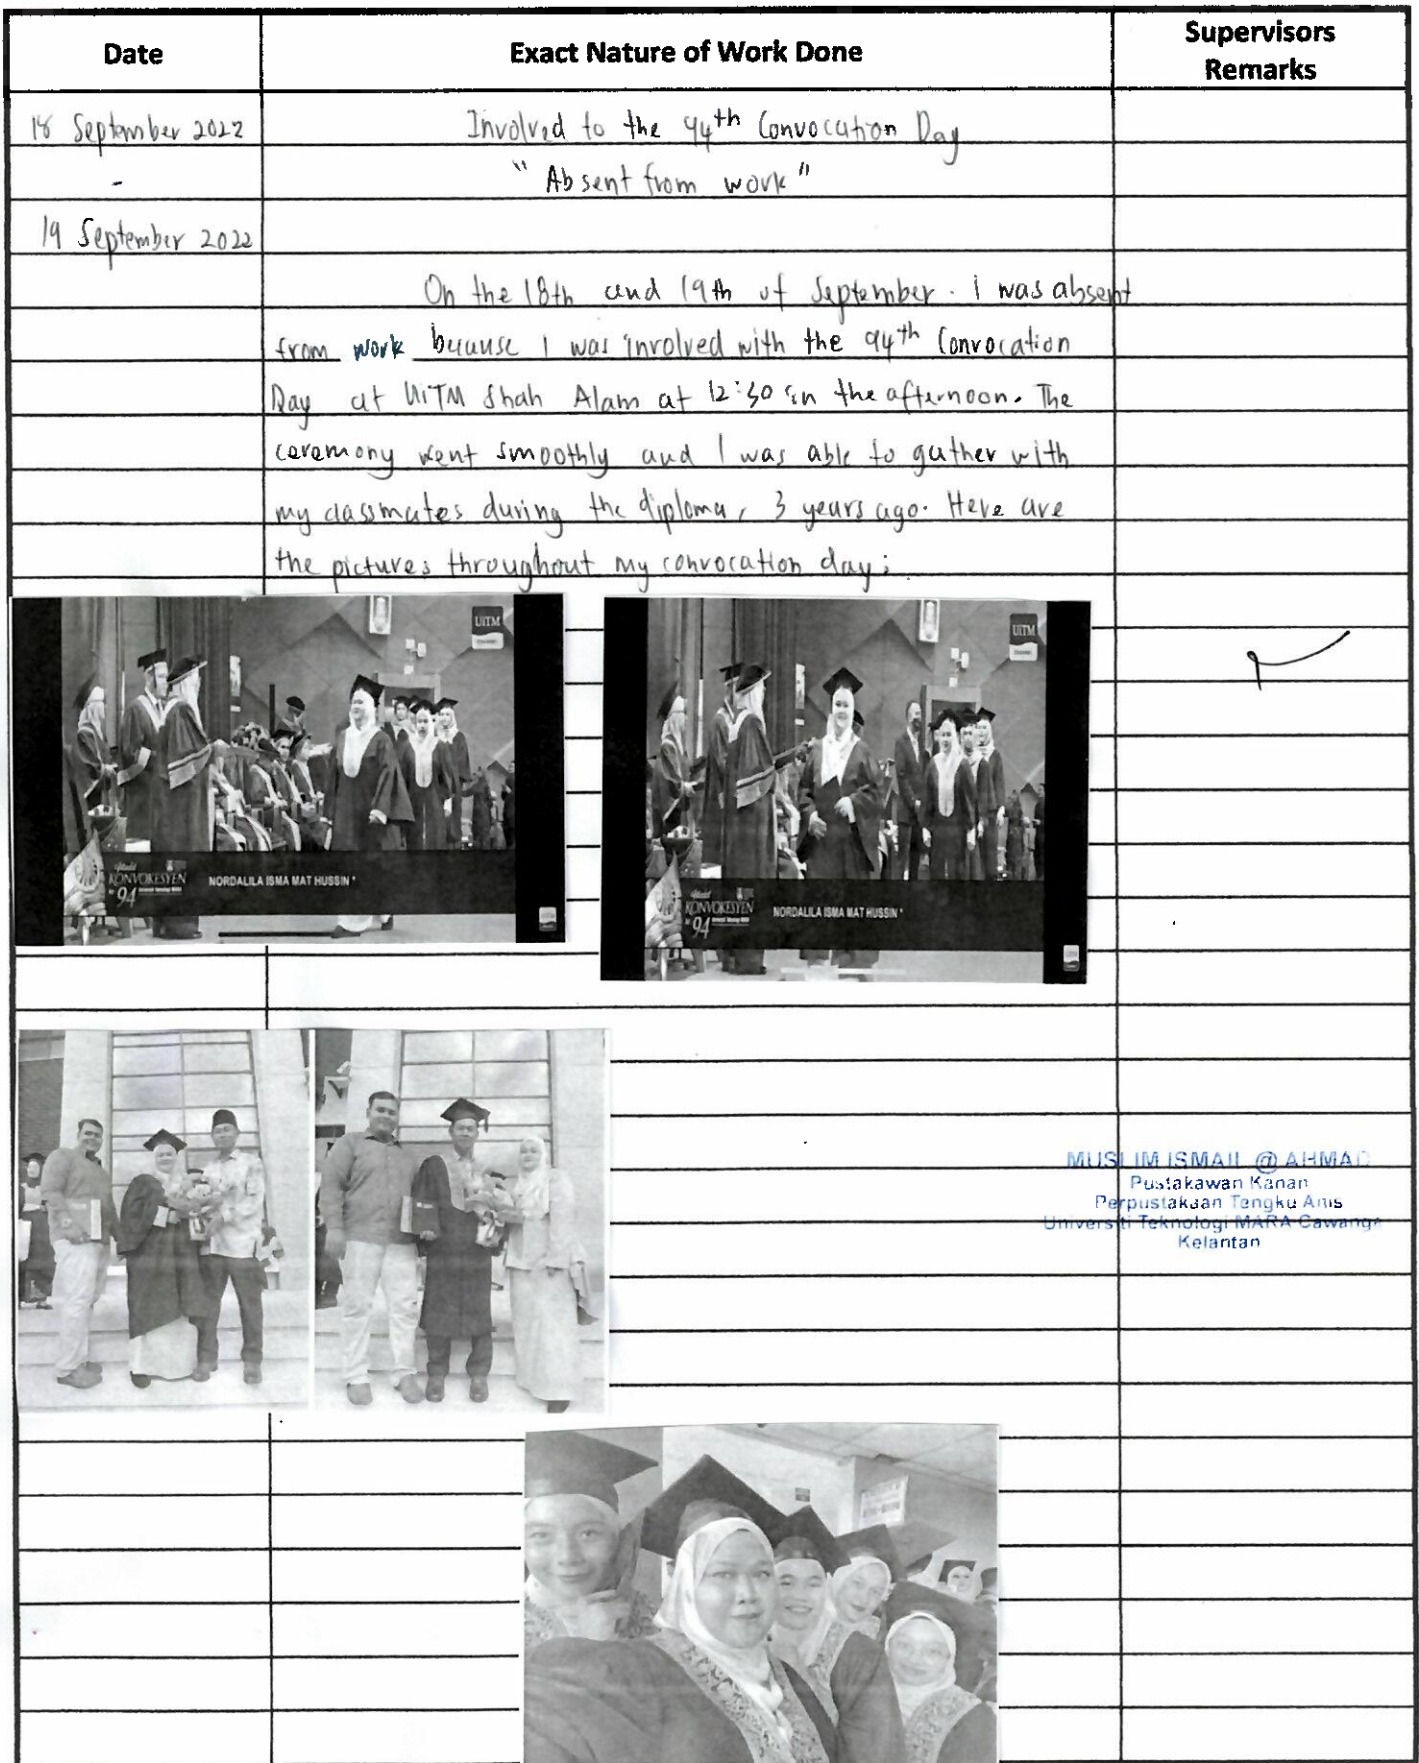 Date
Exact Nature of Work Done
Supervisors
Remarks
18 September 2022
Involved to the 94th Convocation Day
-
"Absent from work"
19 September 2022
On the 18th and 19th of September. I was absent
from work because I was involved with the 94th Convocation
Day at UiTM Shah Alam at 12:30 in the afternoon. The
ceremony went smoothly and I was able to gather with
my classmates during the diploma, 3 years ago. Here are
the pictures throughout my convocation day;
UiTM
UiTM
KONVOKESYEN
94
NORDALILA ISMA MAT HUSSIN *
KONVOKESYEN
94
NORDALILA ISMA MAT HUSSIN *
MUSLIM ISMAIL @ AHMAD
Pustakawan Kanan
Perpustakaan Tengku Anis
Universiti Teknologi MARA Cawanga
Kelantan